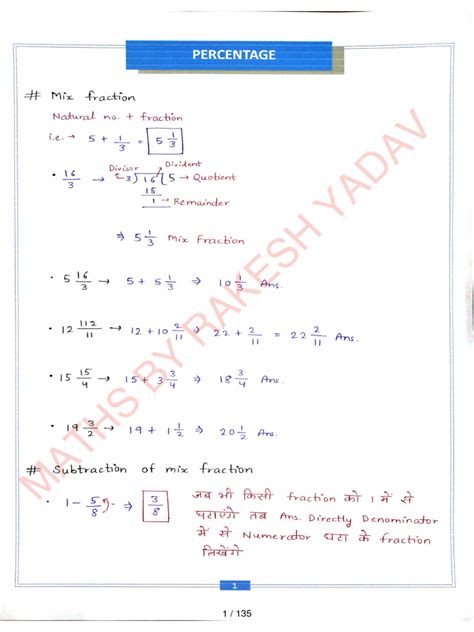 PERCENTAGE
# Mix fraction
Natural no. + fraction
i.e. → 5 + 1/3 = 5 1/3
Divisor Divident
• 16/3 → 3)16(5 → Quotient
15
1 → Remainder
⇒ 5 1/3 Mix fraction
• 5 16/3 → 5 + 5 1/3 ⇒ 10 1/3 Ans.
• 12 112/11 → 12 + 10 2/11 ⇒ 22 + 2/11 = 22 2/11 Ans.
• 15 15/4 → 15 + 3 3/4 ⇒ 18 3/4 Ans.
• 19 3/2 → 19 + 1 1/2 ⇒ 20 1/2 Ans.
# Subtraction of mix fraction
• 1 - 5/8 ⇒ 3/8 जब भी किसी fraction को 1 में से
घटाएंगे तब Ans. Directly Denominator
में से Numerator घटा के fraction
लिखेंगे
MATHS BY RAKESH YADAV
1
1 / 135